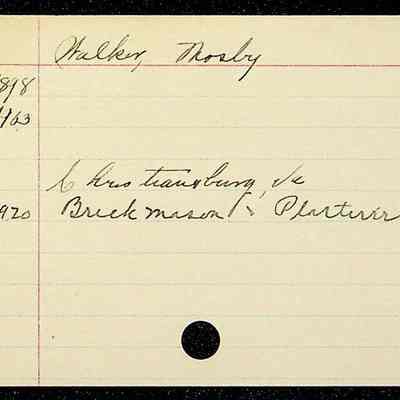 Walker, Mosby
898
/63
Christiansburg, Va
920 Brick mason & Plasterer